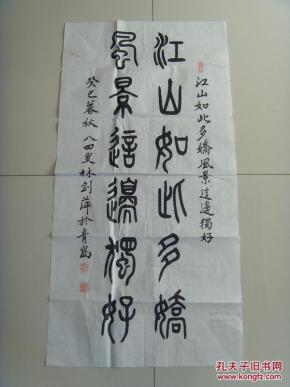 江山如此多嬌風景這邊獨好
江山如此多嬌
風景這邊獨好
癸巳暮秋八四叟林剑萍於青島
孔夫子旧书网